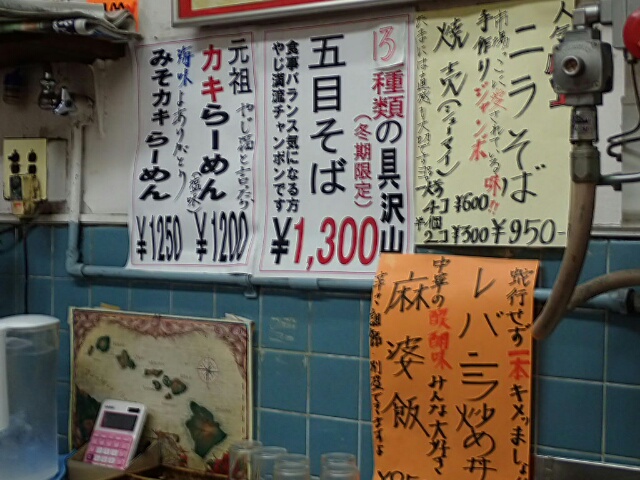 人気
ニラそば
¥950-
市場でこっそり愛されている味!!
手作りジャンボ
焼売(シューマイ)
4コ ¥600
半個
2コ ¥300
13種類の具沢山
(冬期限定)
五目そば
食事バランス気になる方
やじ満流チャンポンです
¥1,300
元祖
やじ満と言えば
カキらーめん
(塩味)
¥1200
海味よありがとう
みそカキらーめん
¥1250
蛇行せず一本キメッましょ
レバニラ炒め丼
中華の醍醐味みんな大好き
麻婆飯